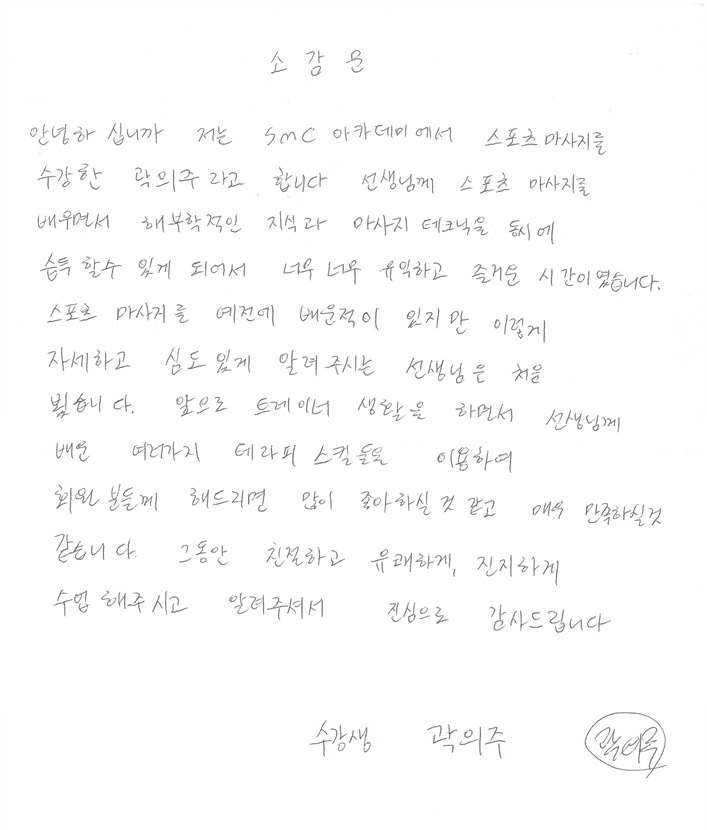 소감문
안녕하 십니까 저는 SMC 아카데미에서 스포츠 마사지를
수강한 곽의주 라고 합니다 선생님께 스포츠 마사지를
배우면서 해부학적인 지식과 마사지 테크닉을 동시에
습득 할수 있게 되어서 너무 너무 유익하고 즐거운 시간이였습니다.
스포츠 마사지를 예전에 배운적이 있지만 이렇게
자세하고 심도있게 알려주시는 선생님은 처음
뵜습니다. 앞으로 트레이너 생활을 하면서 선생님께
배운 여러가지 테라피 스킬들을 이용하여
회원분들께 해드리면 많이 좋아하실 것 같고 매우 만족하실것
같습니다. 그동안 친절하고 유쾌하게, 진지하게
수업 해주시고 알려주셔서 진심으로 감사드립니다
수강생 곽의주